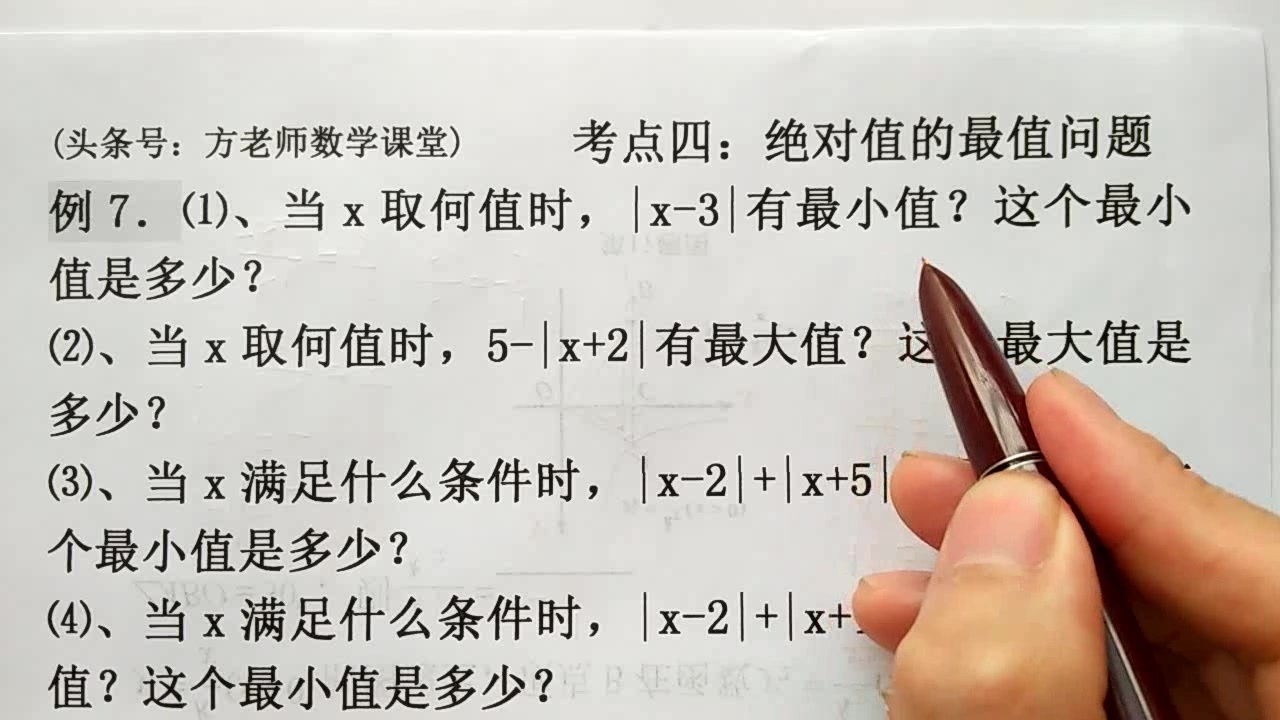 (头条号：方老师数学课堂) 考点四：绝对值的最值问题
例 7．⑴、当 x 取何值时，|x-3|有最小值？这个最小
值是多少？
⑵、当 x 取何值时，5-|x+2|有最大值？这 最大值是
多少？
⑶、当 x 满足什么条件时，|x-2|+|x+5|
个最小值是多少？
⑷、当 x 满足什么条件时，|x-2|+|x+
值？这个最小值是多少？